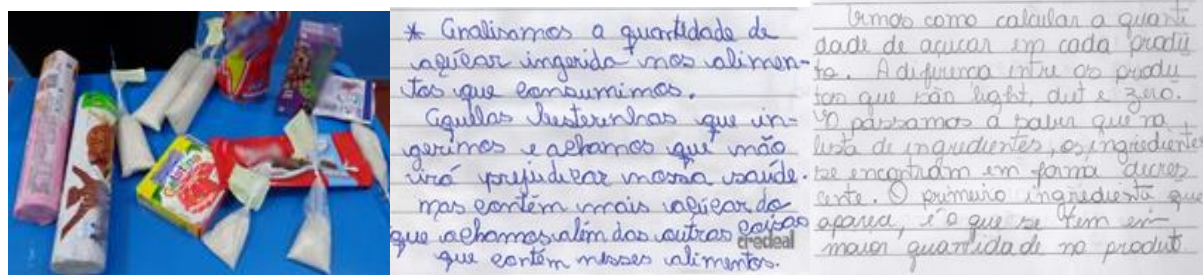 * Analisamos a quantidade de
açúcar ingerida nos alimen-
tos que consumimos.
Aquelas besteirinhas que in-
gerimos e achamos que não
irá prejudicar nossa saúde.
mas contém mais açúcar do
que achamos, além das outras coisas
credeal
que contém nesses alimentos.
Vimos como calcular a quanti
dade de açucar em cada produ
to. A diferença entre os produ
tos que são light, diet e zero.
E passamos a saber que na
lista de ingredientes, os ingredientes
se encontram em forma decres
cente. O primeiro ingrediente que
aparece, é o que se tem em
maior quantidade no produt